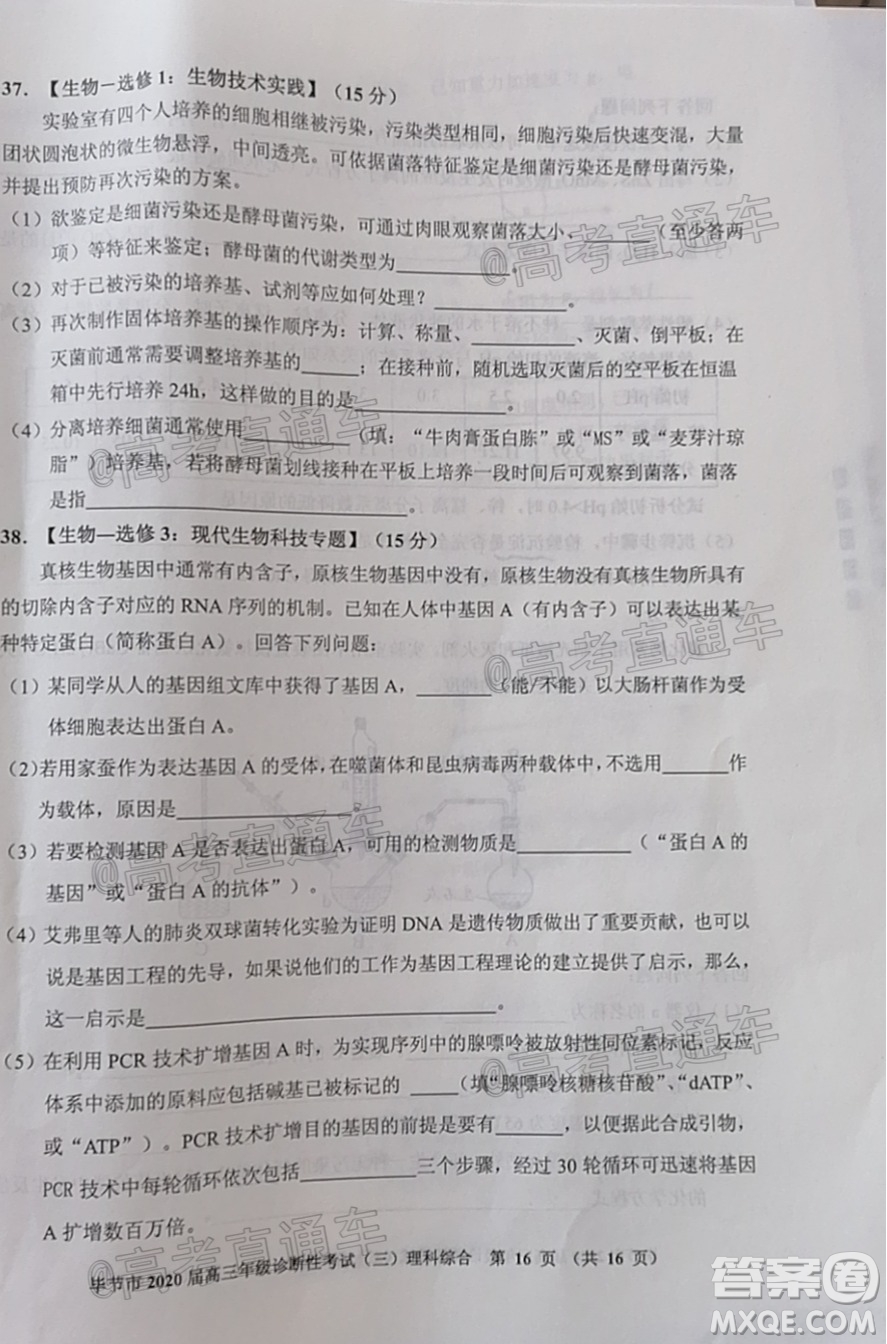 37．【生物－选修 1：生物技术实践】（15 分）
实验室有四个人培养的细胞相继被污染，污染类型相同，细胞污染后快速变混，大量
团状圆泡状的微生物悬浮，中间透亮。可依据菌落特征鉴定是细菌污染还是酵母菌污染，
并提出预防再次污染的方案。
（1）欲鉴定是细菌污染还是酵母菌污染，可通过肉眼观察菌落大小、______（至少答两
项）等特征来鉴定；酵母菌的代谢类型为__________。
（2）对于已被污染的培养基、试剂等应如何处理？____________。
（3）再次制作固体培养基的操作顺序为：计算、称量、________、灭菌、倒平板；在
灭菌前通常需要调整培养基的______；在接种前，随机选取灭菌后的空平板在恒温
箱中先行培养 24h，这样做的目的是____________。
（4）分离培养细菌通常使用______（填：“牛肉膏蛋白胨”或“MS”或“麦芽汁琼
脂”）培养基，若将酵母菌划线接种在平板上培养一段时间后可观察到菌落，菌落
是指____________________________。
38．【生物—选修 3：现代生物科技专题】（15 分）
真核生物基因中通常有内含子，原核生物基因中没有，原核生物没有真核生物所具有
的切除内含子对应的 RNA 序列的机制。已知在人体中基因 A（有内含子）可以表达出某
种特定蛋白（简称蛋白 A）。回答下列问题：
（1）某同学从人的基因组文库中获得了基因 A，______（能/不能）以大肠杆菌作为受
体细胞表达出蛋白 A。
（2）若用家蚕作为表达基因 A 的受体，在噬菌体和昆虫病毒两种载体中，不选用______作
为载体，原因是______________。
（3）若要检测基因 A 是否表达出蛋白 A，可用的检测物质是__________（“蛋白 A 的
基因”或“蛋白 A 的抗体”）。
（4）艾弗里等人的肺炎双球菌转化实验为证明 DNA 是遗传物质做出了重要贡献，也可以
说是基因工程的先导，如果说他们的工作为基因工程理论的建立提供了启示，那么，
这一启示是____________________________。
（5）在利用 PCR 技术扩增基因 A 时，为实现序列中的腺嘌呤被放射性同位素标记，反应
体系中添加的原料应包括碱基被标记的 ____（填“腺嘌呤核糖核苷酸”、“dATP”、
或“ATP”）。PCR 技术扩增目的基因的前提是________，以便据此合成引物，
PCR 技术中每轮循环依次包括__________三个步骤，经过 30 轮循环可迅速将基因
A 扩增数百万倍。
毕节市 2020 届高三年级诊断性考试（三）理科综合 第 16 页 （共 16 页）
@高考直通车
@高考直通车
@高考直通车
@高考直通车
@高考直通车
@高考直通车
@高考直通车
答案圈
MXQE.COM